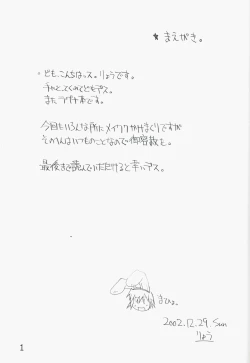 ★まえがき。
・ども、こんちはっス。りょうです。
手にとってくれてどもデス。
またラグナ本です。
今回もいろんな所にメイワクかけまくりですが
そのへんはいつものことなので御容赦を。
最後まで読んでいただけると幸いデス。
2002.12.29. Sun
りょう
1